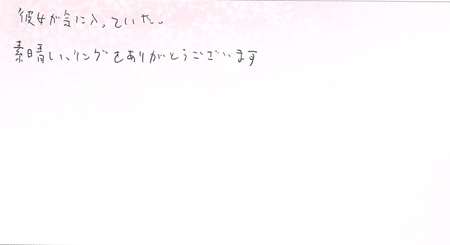 彼女が気に入っていた。
素晴しいリングをありがとうございます